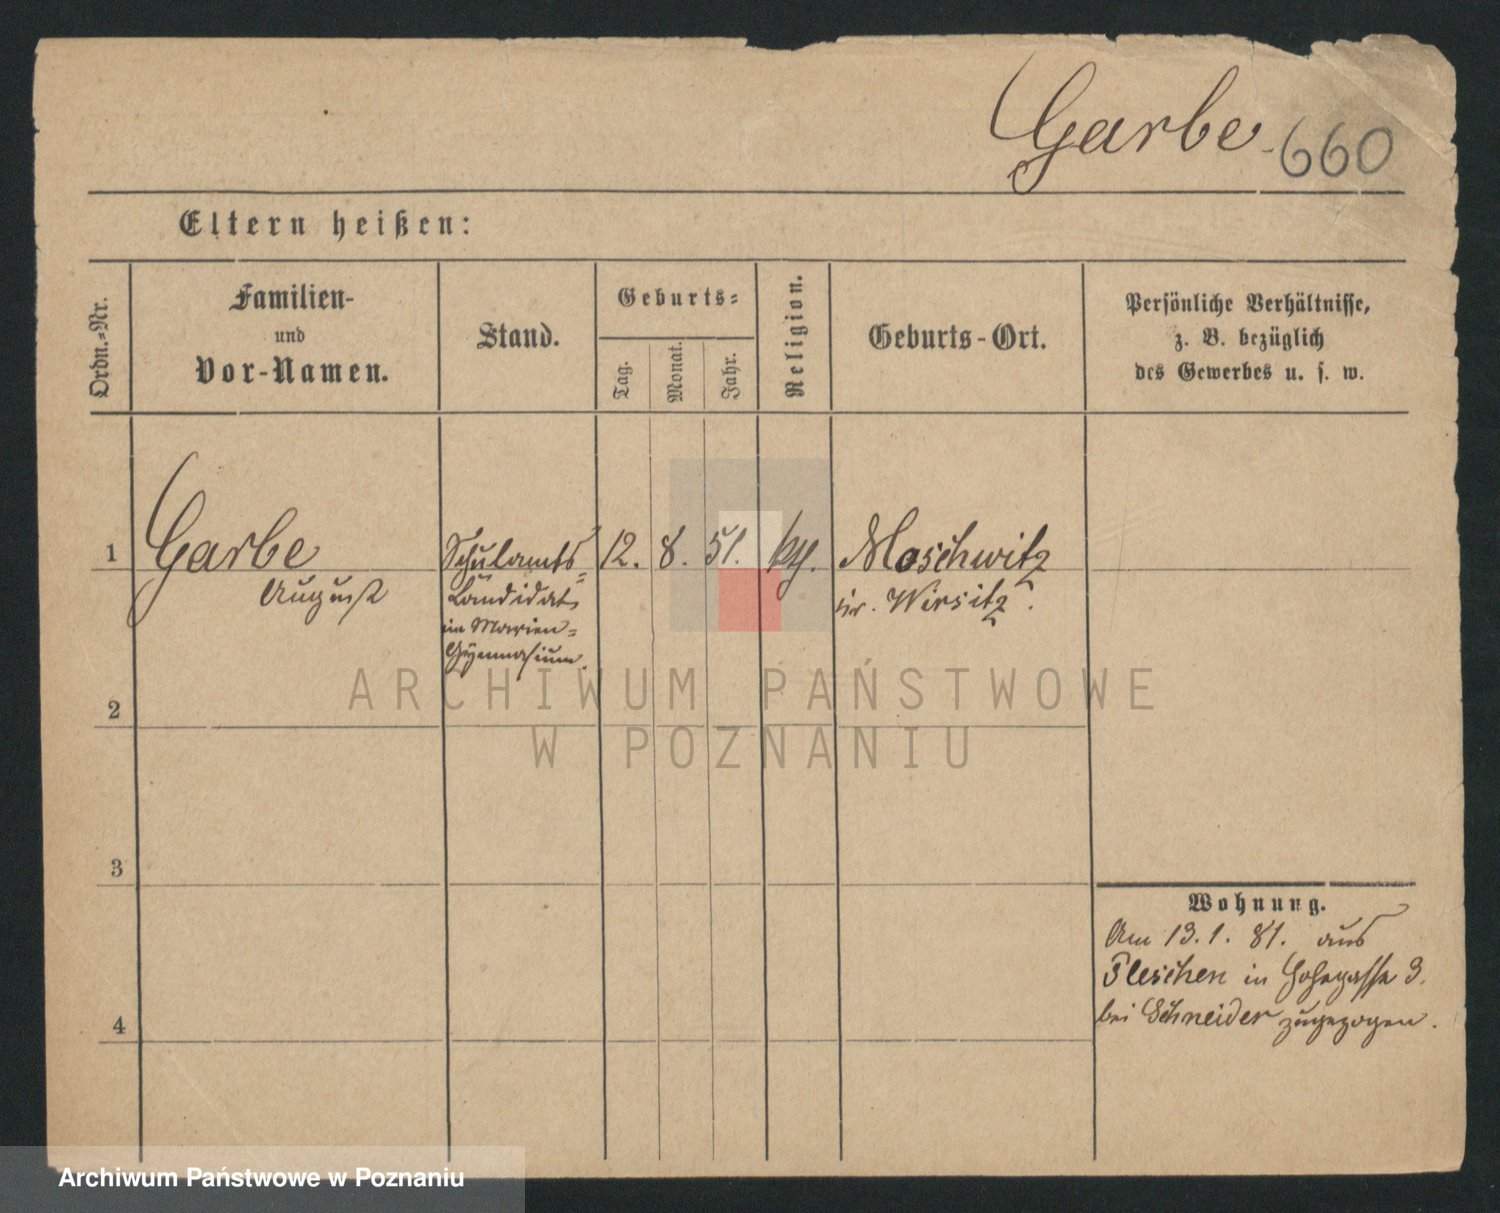 Garbe 660
Eltern heißen:
Ordn.-Nr.
Familien-
und
Vor-Namen.
Stand.
Geburts-
Tag.
Monat.
Jahr.
Religion.
Geburts-Ort.
Persönliche Verhältnisse,
z. B. bezüglich
des Gewerbes u. s. w.
1 Garbe Schulamts- 12. 8. 51. Moschwitz
August Kandidat Kr. Wirsitz.
im Marien-
Gymnasium.
2
ARCHIWUM PAŃSTWOWE
W POZNANIU
3
Wohnung.
Am 13.1.81. aus
Pleschen in Hohegasse 3.
4 bei Schneider zugezogen.
Archiwum Państwowe w Poznaniu